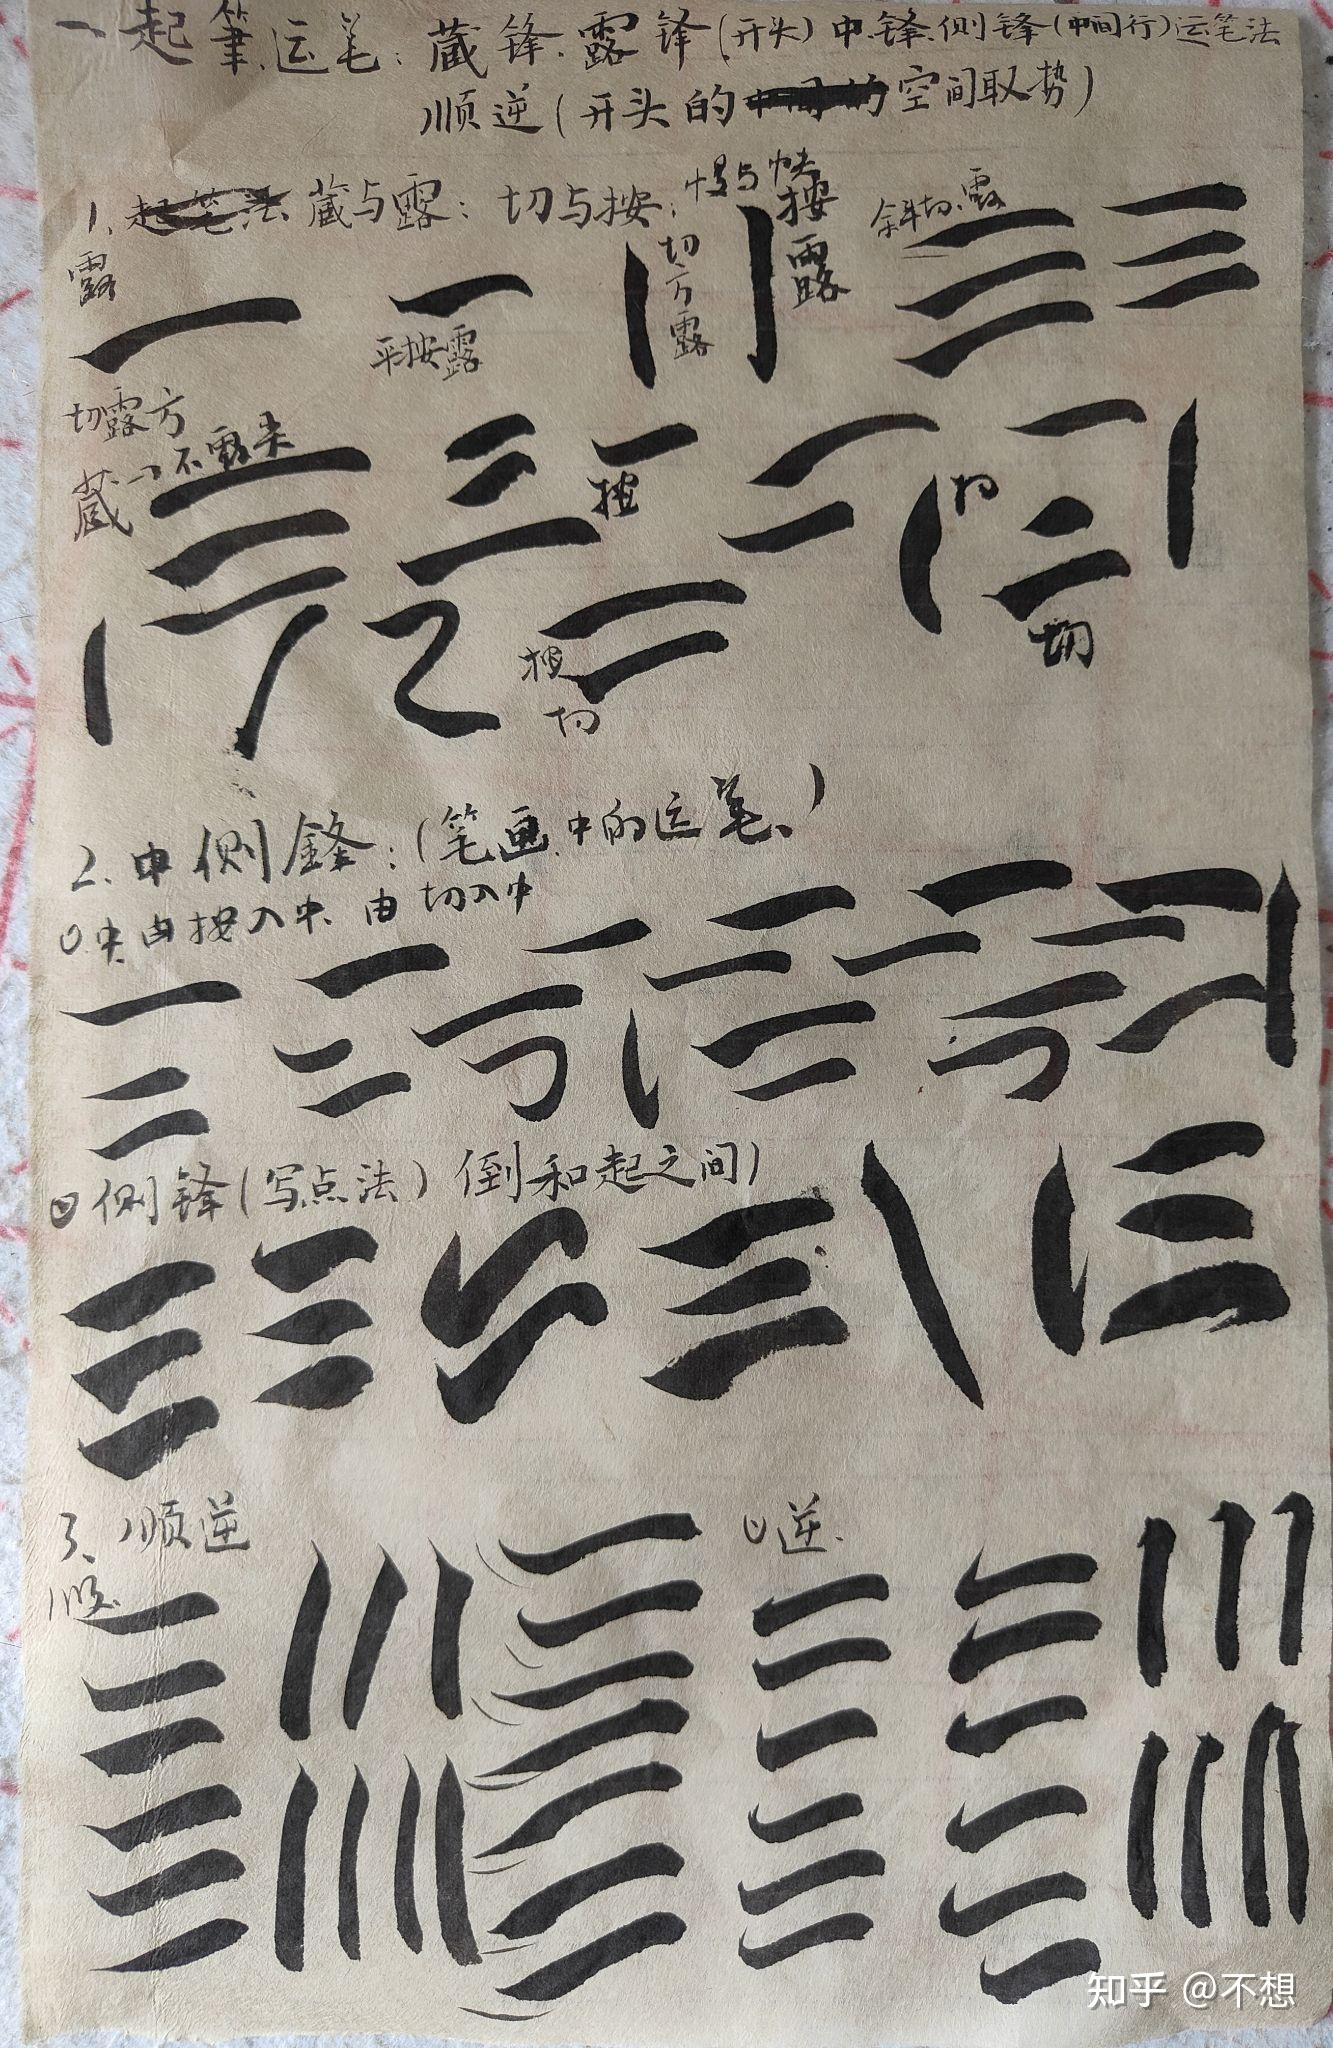 一起筆运笔：蔵锋.露锋(开头)中锋.侧锋(中间行)运笔法
顺逆(开头的空间取势)
1、蔵与露：切与按：慢与快
露
平按露
切方露
按露
斜切露
切露方
蔵→不露尖
按
切
切
按
切
2.中侧鋒：(笔画中的运笔)
由按入中.由切入中
侧锋(写点法)倒和起之间)
3、顺逆
顺
逆.
知乎 @不想